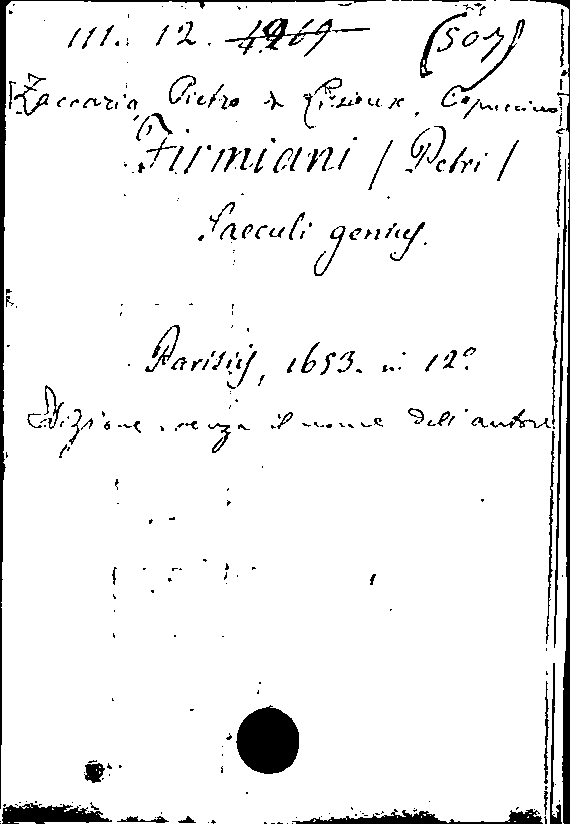 III. 12. 4269 (507)
[Zaccaria, Pietro de Lisieux, Capuccino]
Firmiani / Petri /
Saeculi genius.
Parisiis, 1653. in 12º
Edizione senza il nome dell'autore